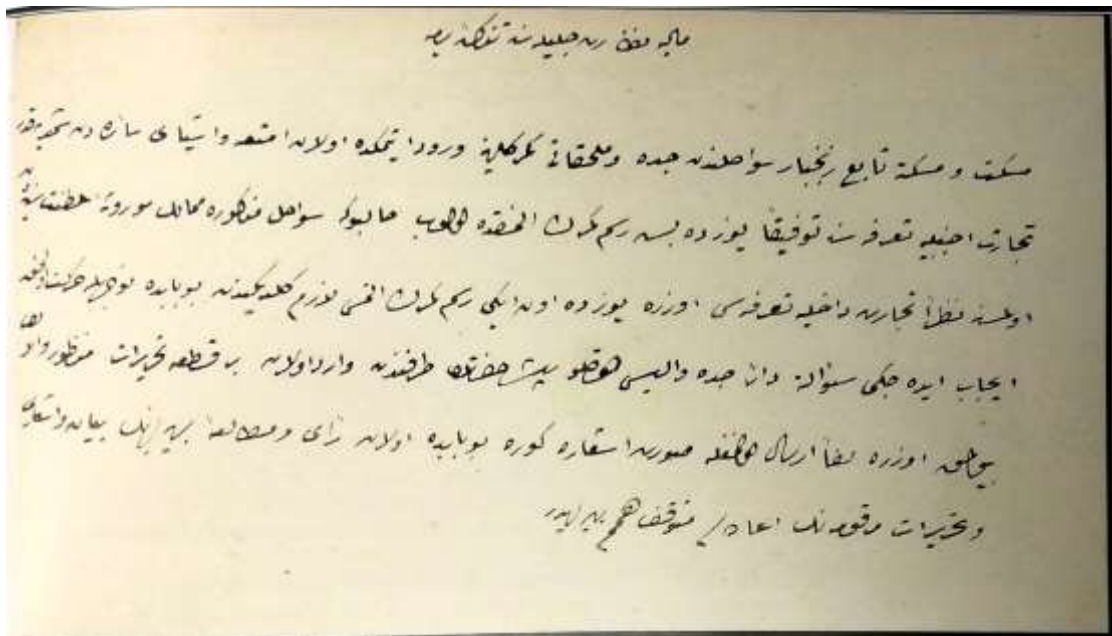 مالیه نظارت جلیله‌سنه تذکره
مسکت و مسکته تابع زنجبار سواحلندن جده و ملحقاتی کمرکلرینه ورود ایتمکده اولان امتعه و اشیای سائره دن
تجارت اجنبیه تعرفه سنه توفیقاً یوزده رسم کمرك النمقده اولوب حالبوکه سواحل مذکوره ممالك موروثهٔ سلطنت سنیه
اولمسنه نظراً تجارت داخلیه تعرفه سی اوزره یوزده اون ایکی رسم کمرك النمسی لازم کله جکندن بوبابده نوجهله حرکت
ایجاب ایده جکی سؤالنه دائر جده والیسی دولتلو پاشا حضرتلری طرفندن وارد اولان بر قطعه تحریرات منظور والالری
بیورلمق اوزره لفاً ارسال قلنمغله صورت اشعاره کوره بوبابده اولان رأی و مطالعهٔ بیان و اشعاری
و تحریرات مرقومه نك اعاده سی متوقف همم